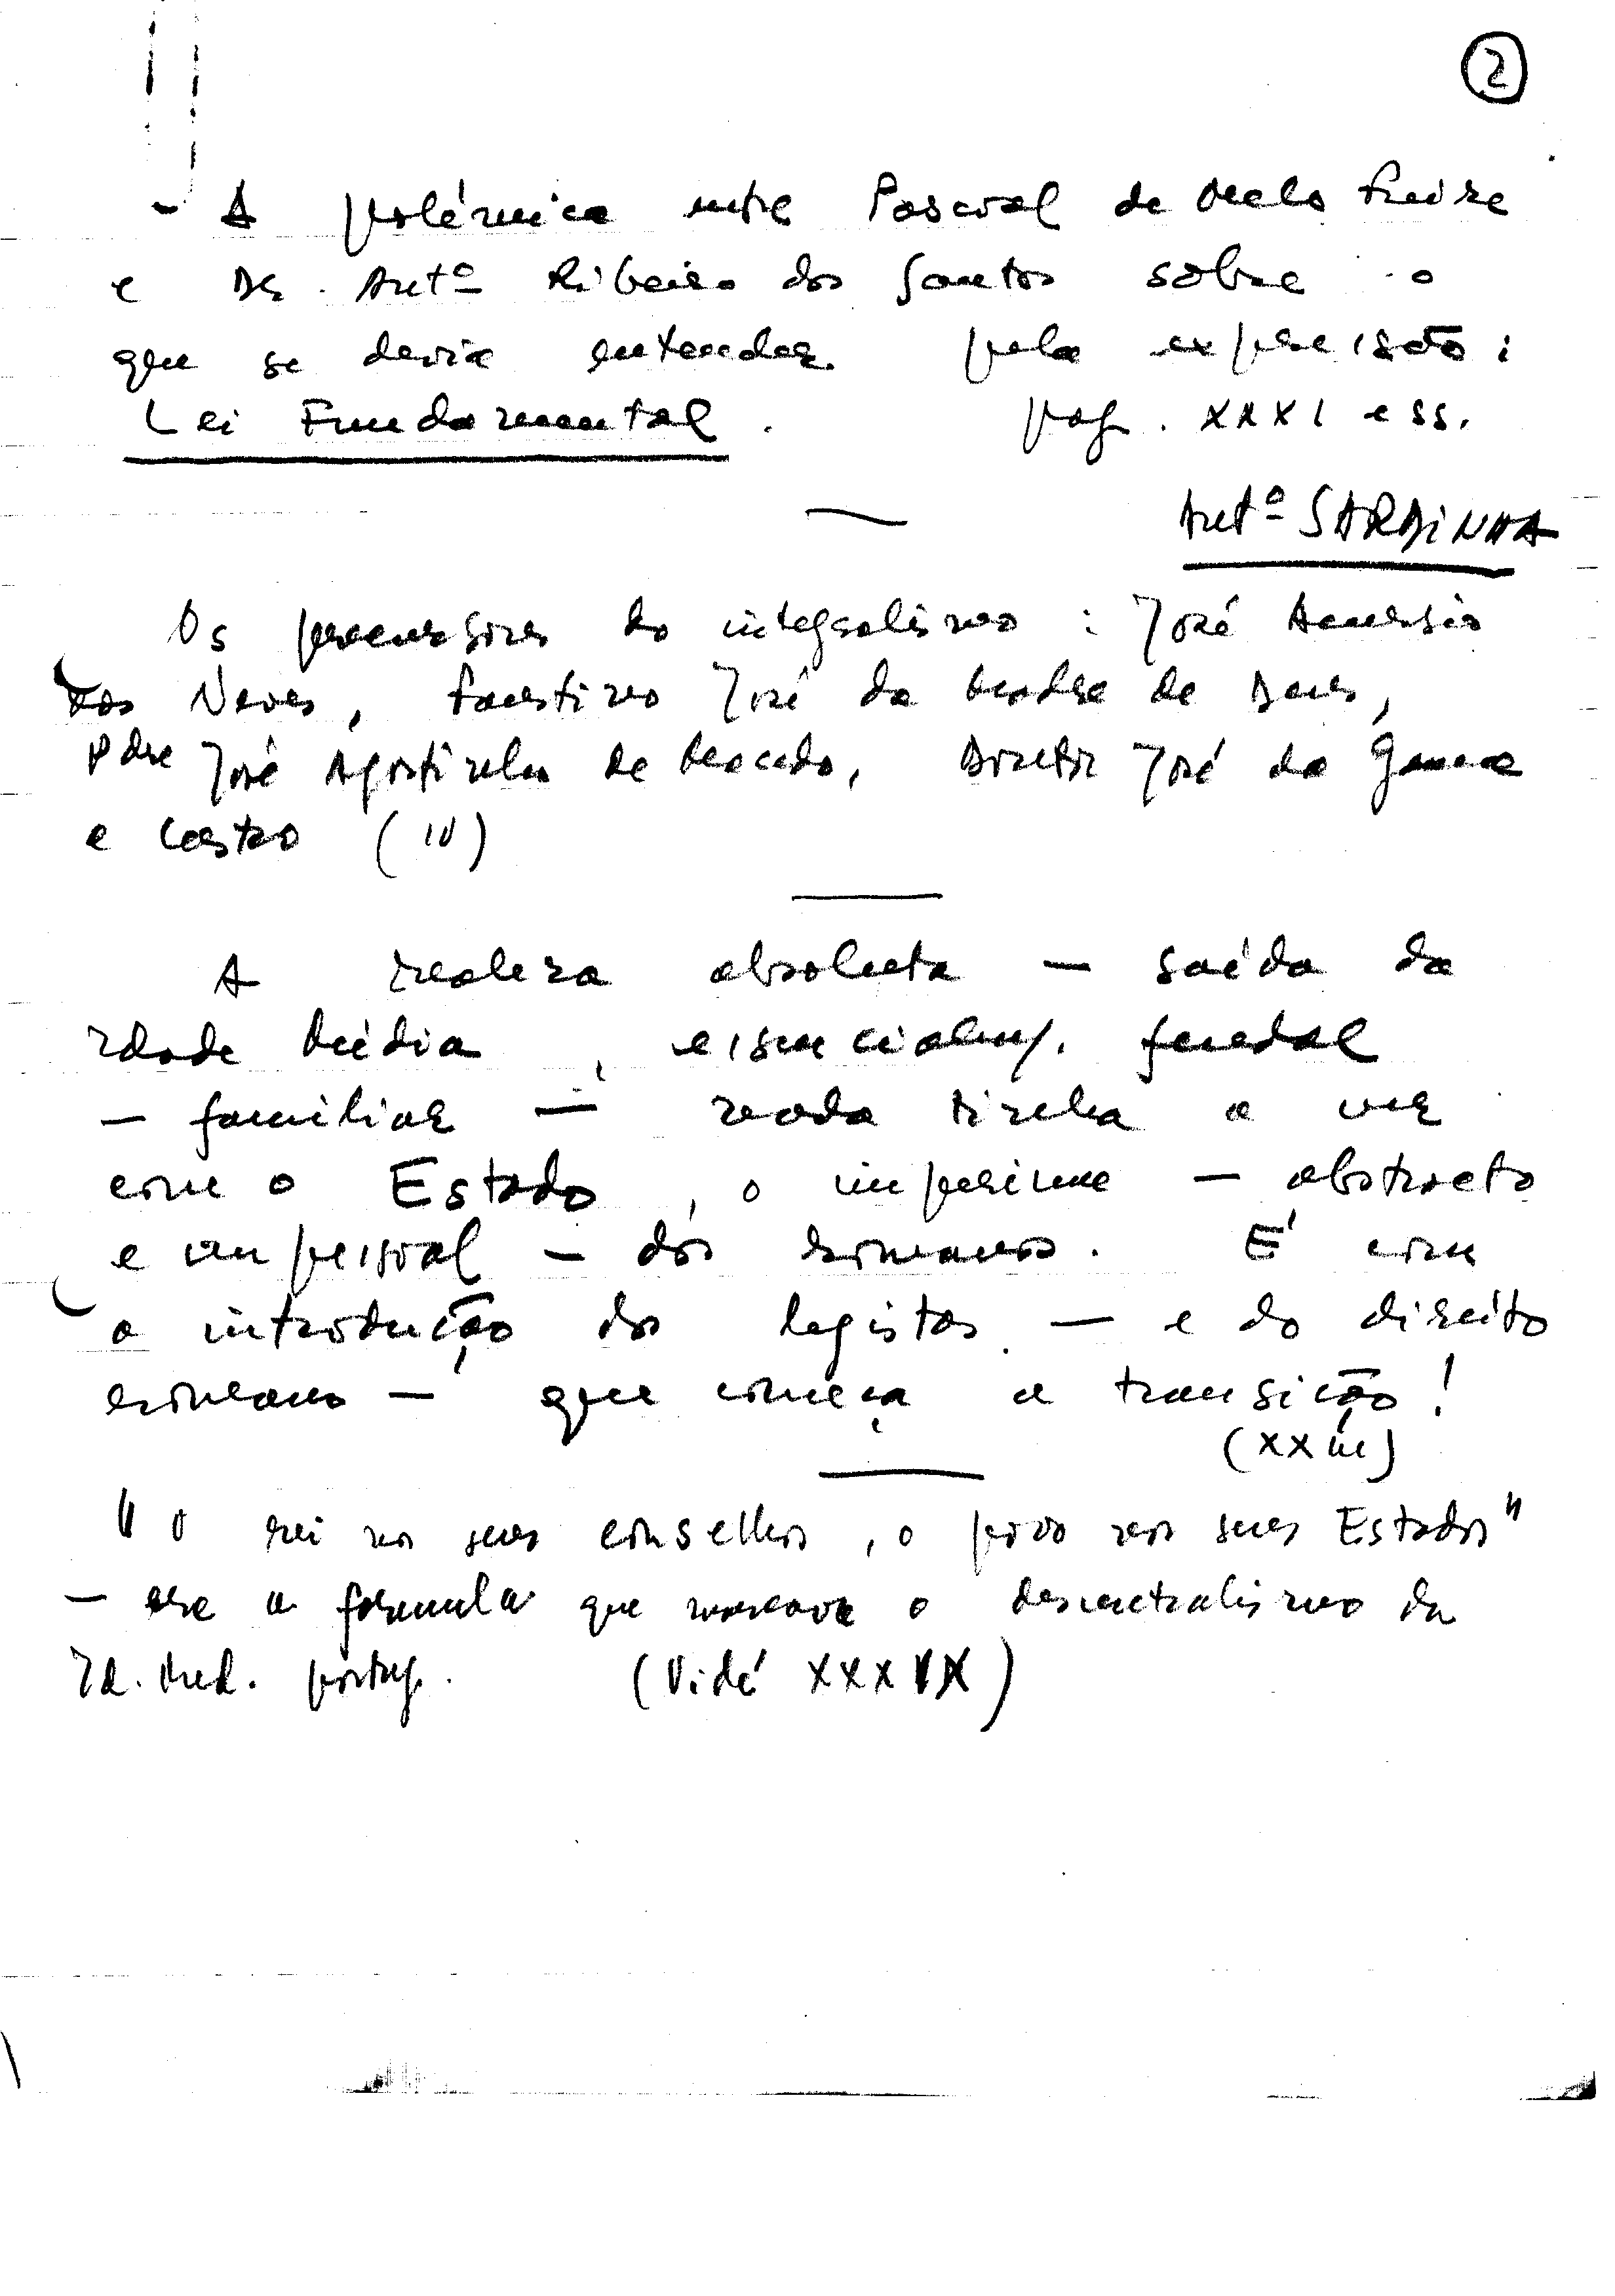 2
- A polémica entre Pascoal de Melo Freire
e Dr. Antº Ribeiro dos Santos sobre o
que se devia entender pela expressão:
Lei Fundamental. pag. XXXI e ss.
Antº SARDINHA
Os precursores do integralismo: José Acursio
das Neves, Faustino José da Madre de Deus,
Pdre José Agostinho de Macedo, Doutor José da Gama
e Castro (IV)
A realeza absoluta — saída da
Idade Média, essencialm/. feudal
— familiar — nada tinha a ver
com o Estado, o imperium — abstracto
e impessoal — dos romanos. É com
a introdução dos legistas — e do direito
romano — que começa a transição!
(XXIII)
"O rei nos seus conselhos, o povo nos seus Estados"
— era a formula que marcava o descentralismo da
Id. Med. portug. (Vidé XXXIX)